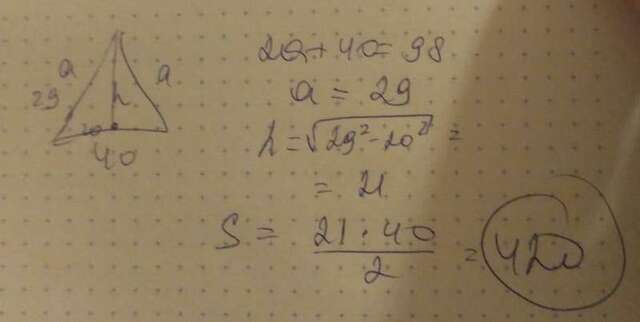 a a
29 h
20
40
2a+40=98
a = 29
h = √29²-20² =
= 21
S = 21·40/2 = 420